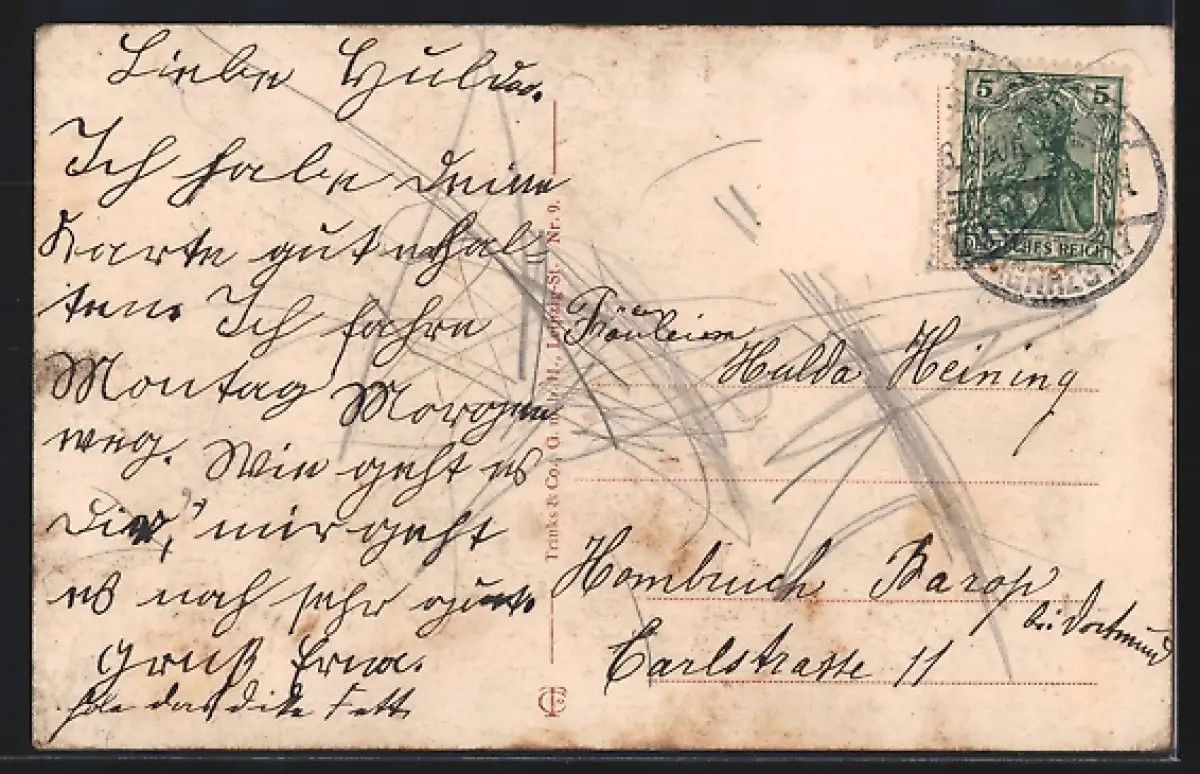 Liebe Hulda.
Ich habe Deine
Karte gut erhal-
ten. Ich fahre
Montag Morgen
weg. Wie geht es
Dir, mir geht
es noch sehr gut.
Gruß Erna.
das dike Fett
Trinks & Co., G. m. b. H., Leipzig-St. Nr. 9.
5 5
DEUTSCHES REICH
Fräulein
Hulda Heining
Hombruch Barop
bei Dortmund
Carlstrasse 11